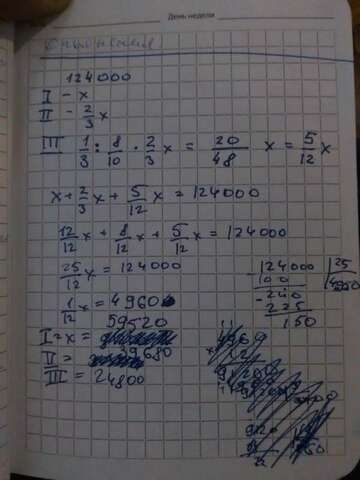 День недели
124000
I - x
II - 2/3 x
III 1/3 : 8/10 · 2/3 x = 20/48 x = 5/12 x
x + 2/3 x + 5/12 x = 124000
12/12 x + 8/12 x + 5/12 x = 124000
25/12 x = 124000
1/12 x = 4960
59520
I = x =
II = 39680
III = 24800
124000 | 25
100
- 240
225
150